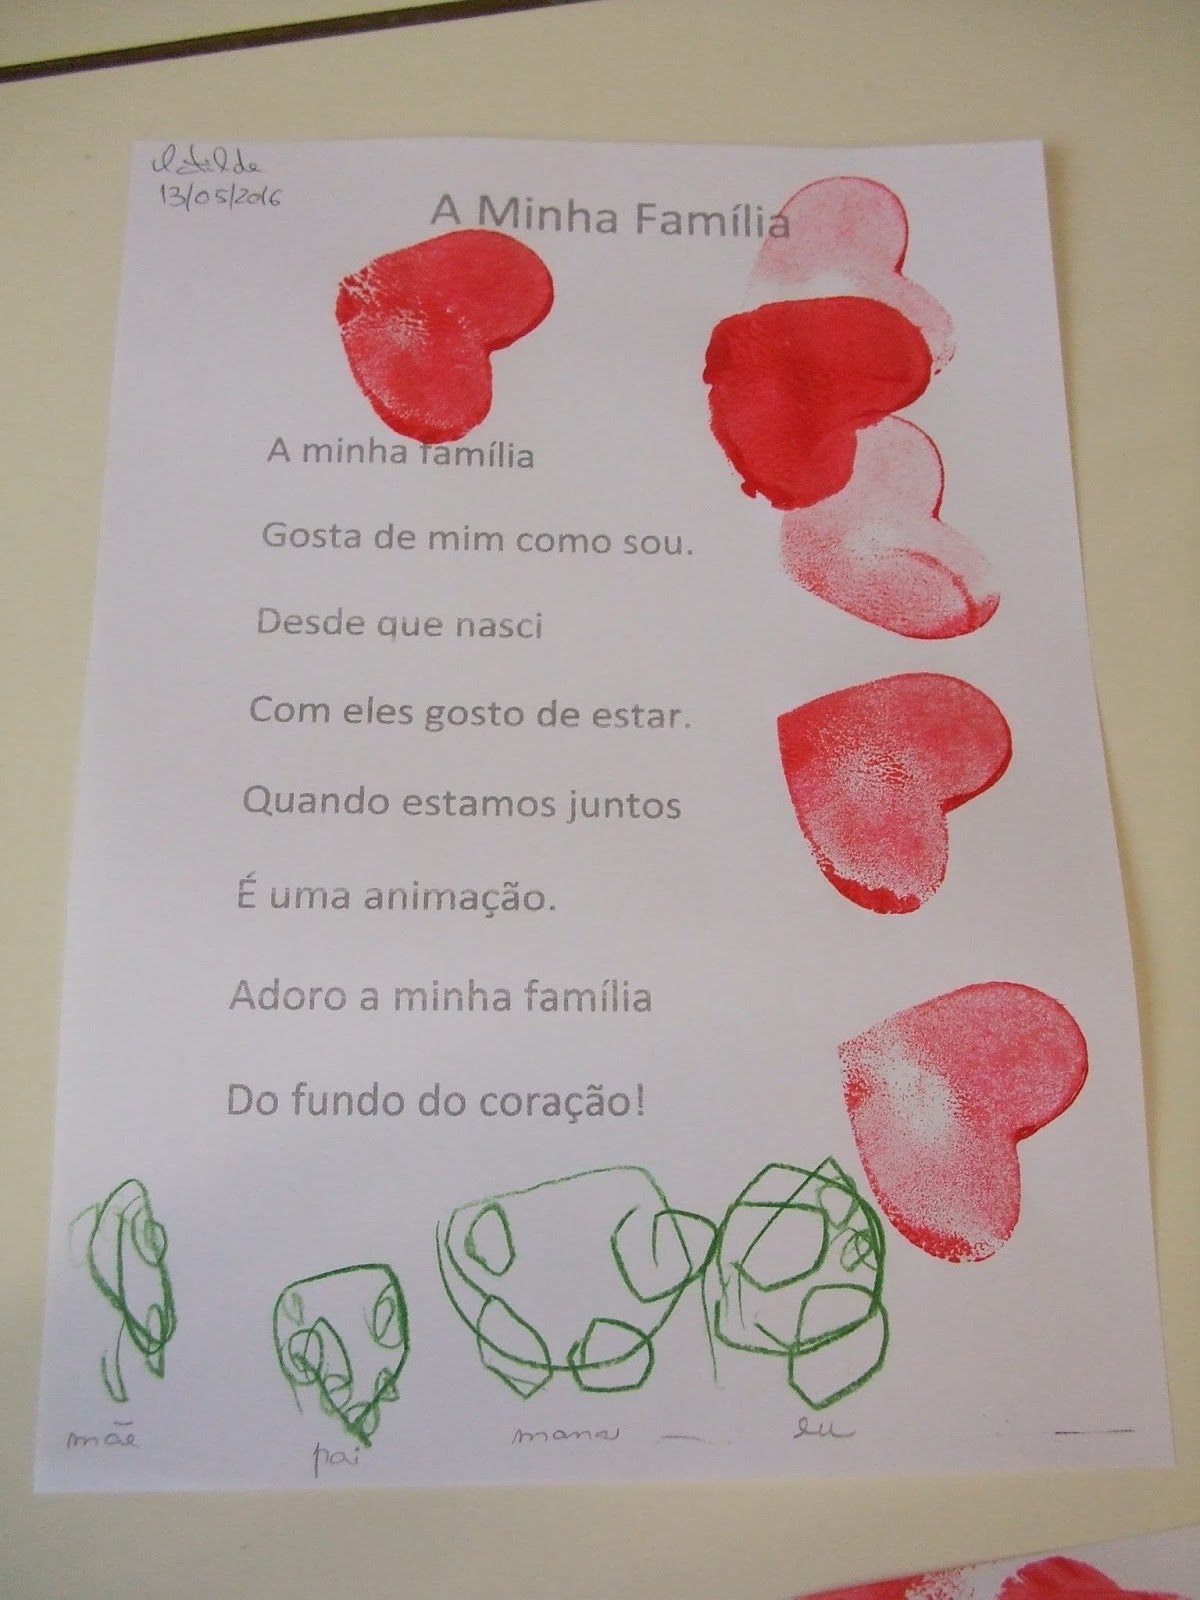 Matilde
13/05/2016
A Minha Família
A minha família
Gosta de mim como sou.
Desde que nasci
Com eles gosto de estar.
Quando estamos juntos
É uma animação.
Adoro a minha família
Do fundo do coração!
mãe
pai
mana
eu